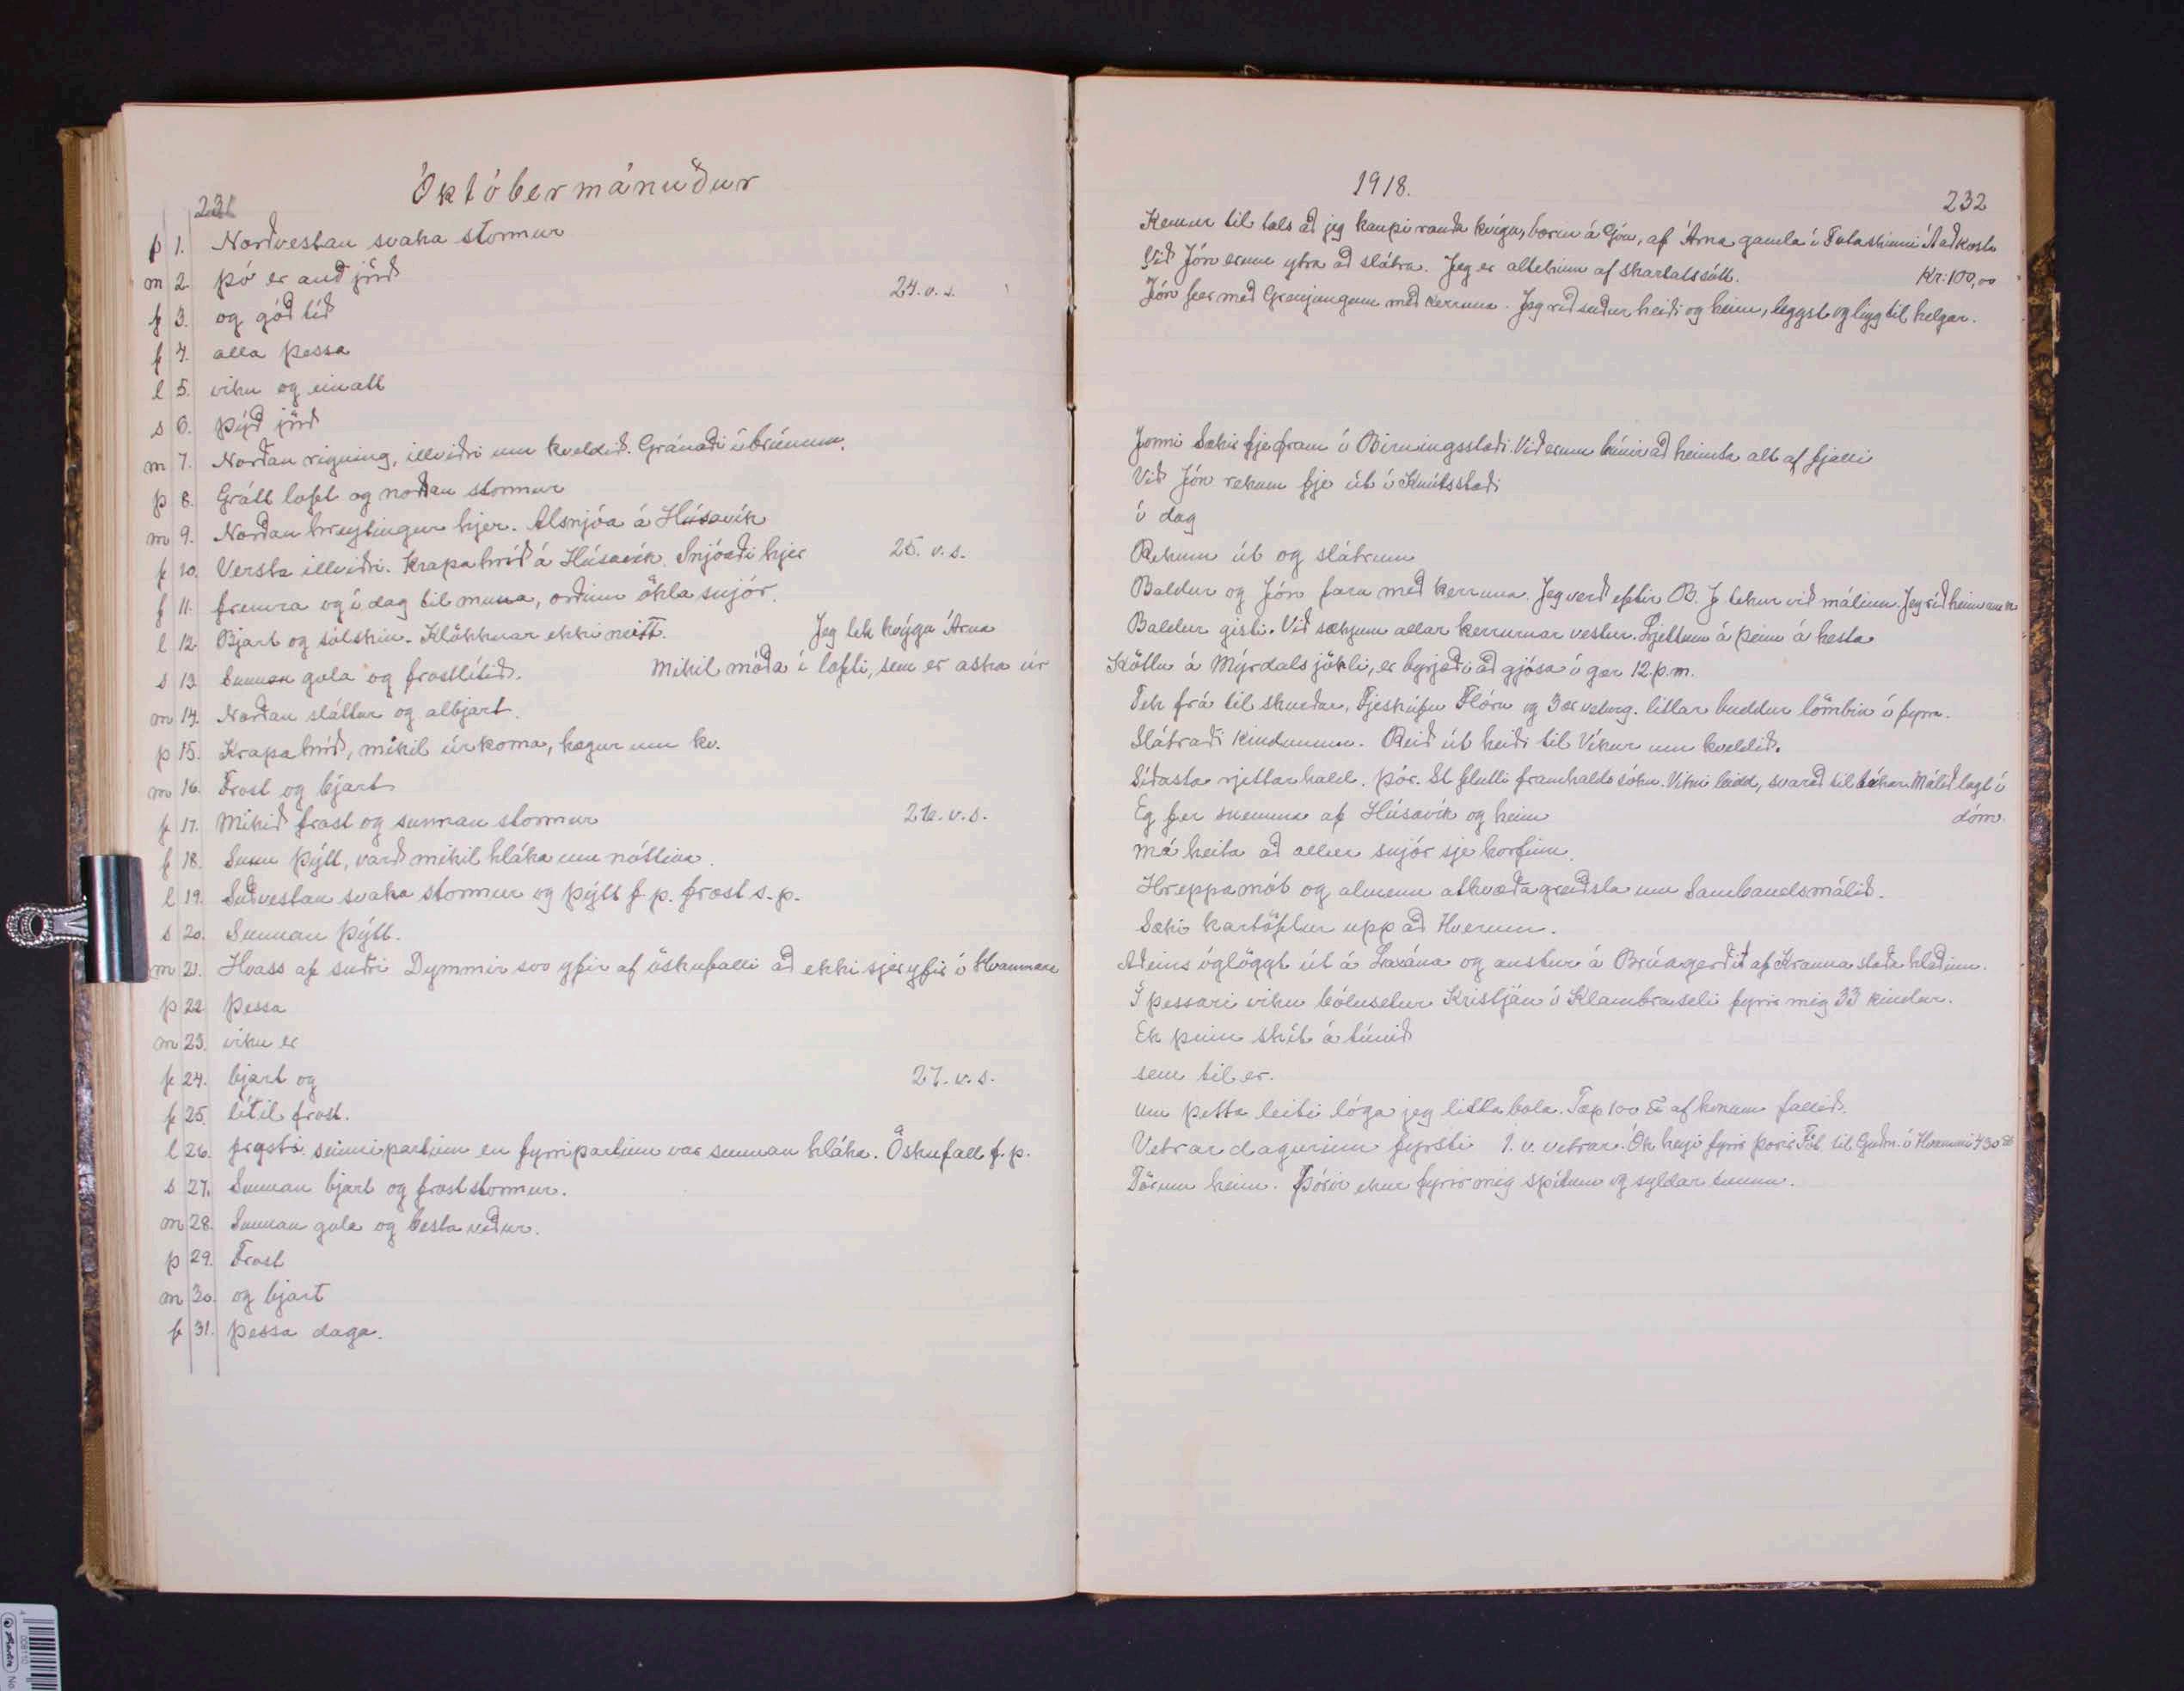 231
Októbermánuður
þ 1. Norðvestan svaka stormur
m 2. þó er auð jörð
f 3. og góð tíð 24. v. s.
f 4. alla þessa
l 5. viku og einatt
s 6. þýð jörð
m 7. Norðan rigning, illviðri um kveldið. Gránaði í brúnum.
þ 8. Grátt loft og norðan stormur
m 9. Norðan hreytingur hjer. Alsnjóa á Húsavík
f 10. Versta illviðri. Krapahríð á Húsavík. Snjóaði hjer 25. v. s.
f 11. fremra og í dag til muna, orðinn ökla snjór.
l 12. Bjart og sólskin. Klökknar ekki neitt. Jeg tek kvýgu Árna
s 13. Sunnan gola og frostlítið. Mikil móða í lofti, sem er aska úr
m 14. Norðan sláttur og albjart.
þ 15. Krapahríð, mikil úrkoma, hægur um kv.
m 16. Frost og bjart
f 17. Mikið frost og sunnan stormur 26. v. s.
f 18. Sunn þýtt, varð mikil hláka um nóttina.
l 19. Suðvestan svaka stormur og þýtt f. p. frost s. p.
s 20. Sunnan þýtt.
m 21. Hvass af suðri Dymmir svo yfir af öskufalli að ekki sjer yfir í Hvammana
þ 22. þessa
m 23. viku er
f 24. bjart og 27. v. s.
f 25. lítil frost.
l 26. frysti seinnipartinn en fyrripartinn var sunnan hláka. Öskufall f. p.
s 27. Sunnan bjart og froststormur.
m 28. Sunnan gola og besta veður.
þ 29. Frost
m 30. og bjart
f 31. þessa daga.
1918.
232
Kemur til tals að jeg kaupi rauða kvígu, af Árna gamla í
Við Jón erum ytra að slátra. Jeg er altekinn af skarlatssótt. Kr. 100,00
Jón fer með með kerruna. Jeg ríð suður heiði og heim, leggst og ligg til helgar.
Jonni Sækir fje fram í Birningsstaði. Við erum búnir að heimta alt af fjalli
Við Jón rekum fje út í Knútsstaði
í dag
Rekum út og slátrum
Baldur og Jón fara með kerruna. Jeg verð eftir B. J tekur við málinu. Jeg ríð heim
Baldur gisti. Við sækjum allar kerrurnar vestur. á þeim á hesta
Kötlu á Mýrdalsjökli, er byrjaði að gjósa í gær 12. p. m.
Tek frá til skurðar, Flóru og 3 litlar buddur lömbin í fyrra.
Slátraði kindunum. Reið út heiði til Víkur um kveldið.
Síðasta rjettarhald. Þór. St flutti framhaldssókn. Vitni leidd, svarað til sakar. Málið lagt í
Eg fer snemma af Húsavík og heim dóm.
má heita að allur snjór sje horfinn.
Hreppamót og almenn atkvæðagreiðsla um Sambandsmálið.
Sæki kartöflur upp að Hverum.
Aðeins óglöggt út á Laxána og austur á Brúagerðið af Kraunastaða hlaðinu.
Í þessari viku bólusetur Kristján í Klambraseli fyrir mig 33 kindur.
Ek þeim skít á túnið
sem til er.
um þetta leiti lóga jeg litla bola. Tæp 100 ℔ af honum fallið.
Vetrardagurinn fyrsti 1. v. vetrar. Ók heyi fyrir Þóri til Guðm. í Hvammi 430 ℔
Förum heim. Þórir ekur fyrir mig spítum og syldar tunnu.